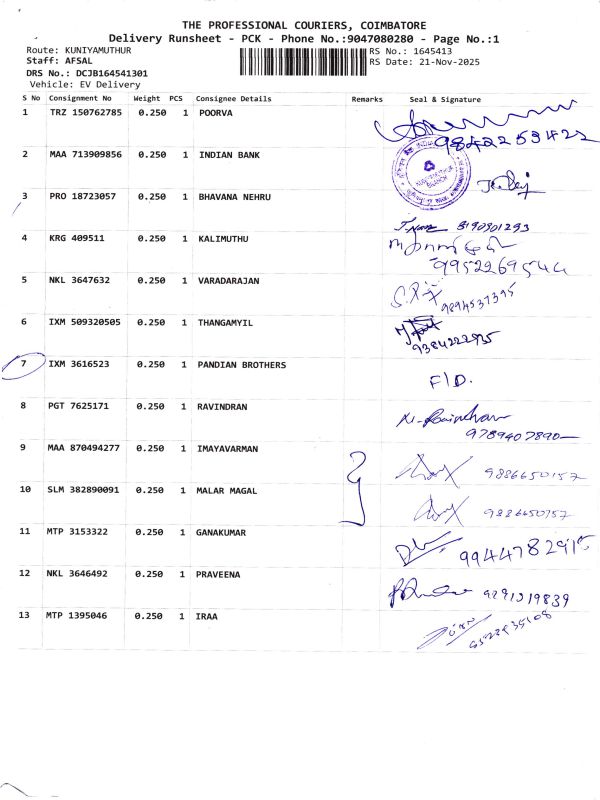 THE PROFESSIONAL COURIERS, COIMBATORE
Delivery Runsheet - PCK - Phone No.:9047080280 - Page No.:1
Route: KUNIYAMUTHUR RS No.: 1645413
Staff: AFSAL RS Date: 21-Nov-2025
DRS No.: DCJB164541301
Vehicle: EV Delivery
S No Consignment No Weight PCS Consignee Details Remarks Seal & Signature
1 TRZ 150762785 0.250 1 POORVA
2 MAA 713909856 0.250 1 INDIAN BANK
3 PRO 18723057 0.250 1 BHAVANA NEHRU
8190901293
4 KRG 409511 0.250 1 KALIMUTHU
9952269544
5 NKL 3647632 0.250 1 VARADARAJAN
9894537395
6 IXM 509320505 0.250 1 THANGAMYIL
9384222935
7 IXM 3616523 0.250 1 PANDIAN BROTHERS F/D.
8 PGT 7625171 0.250 1 RAVINDRAN
9789407890
9 MAA 870494277 0.250 1 IMAYAVARMAN 9886650157
10 SLM 382890091 0.250 1 MALAR MAGAL 9886650157
11 MTP 3153322 0.250 1 GANAKUMAR
12 NKL 3646492 0.250 1 PRAVEENA
13 MTP 1395046 0.250 1 IRAA